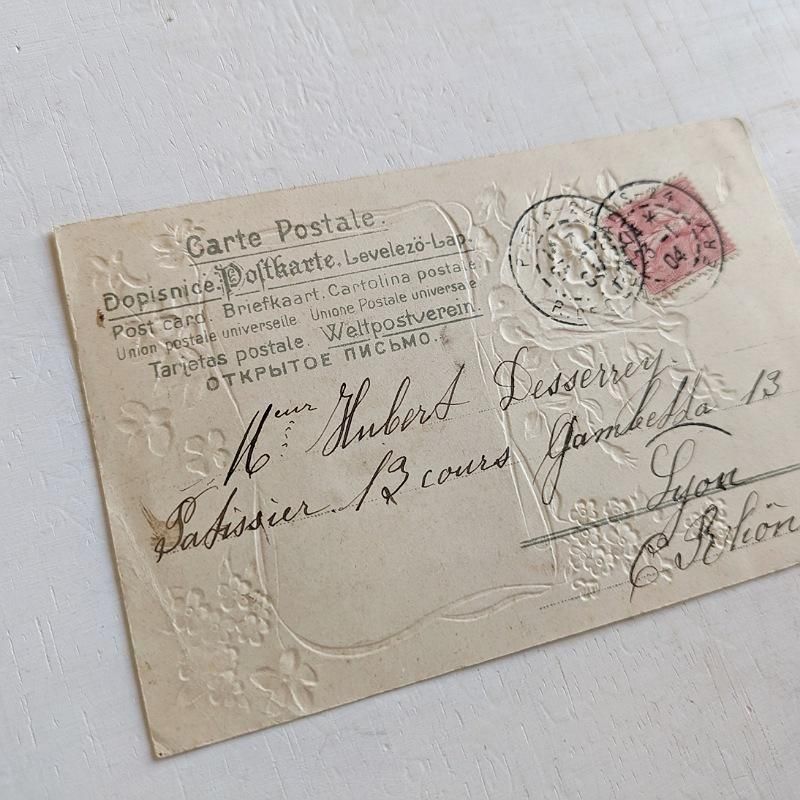 Carte Postale.
Dopisnice. Postkarte. Levelezö-Lap.
Post card. Briefkaart. Cartolina postale.
Union postale universelle. Unione Postale universale
Tarjetas postale. Weltpostverein.
ОТКРЫТОЕ ПИСЬМО.
PARIS
04
Meur Hubert Desserrey.
Patissier 13 cours Gambetta 13
Lyon
Rhôn